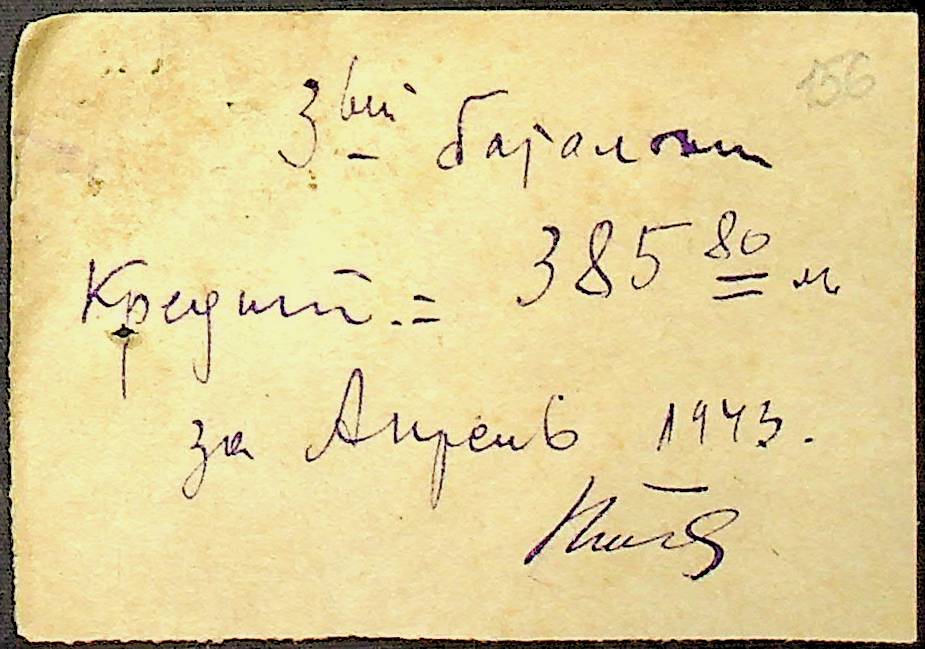 156
3ый баталон
Кредит. = 385 80 м
за Апрель 1943.